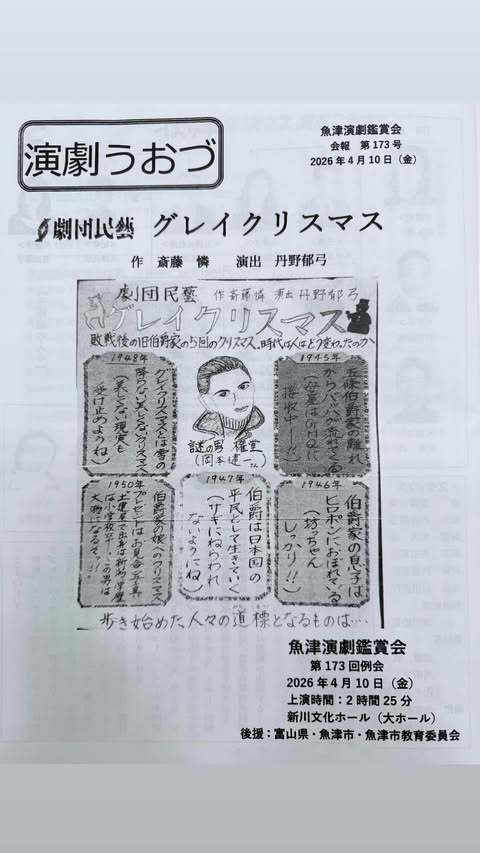 演劇うおづ
魚津演劇鑑賞会
会報 第173号
2026年4月10日（金）
劇団民藝 グレイクリスマス
作 斎藤 憐 演出 丹野郁弓
劇団民藝 作 斎藤憐 演出 丹野郁弓
グレイクリスマス
敗戦後の旧伯爵家の5回のクリスマス。時代は人はどう変わったのか
1945年
五條伯爵家の離れ
からジャズが流れてくる
（母屋はGHQに
接収中ー!!）
1946年
伯爵家の息子は
ヒロポンにおぼれている
（坊っちゃん
しっかり!!）
1947年
伯爵は日本国の
平民として生きていく
（サギにねらわれ
ないようにね）
1948年
グレイクリスマスは雪の
降らない美しくないクリスマス
（美しくない現実も
受け止めようね）
1950年
伯爵家の娘へのクリスマス
プレゼントはお見合い写真
土建業で出身は新潟、学歴
は小学校卒…この男は
大物になるぞ!!
謎の男 権堂
（岡本健一さん）
歩き始めた人々の道標となるものは…
魚津演劇鑑賞会
第173回例会
2026年4月10日（金）
上演時間：2時間25分
新川文化ホール（大ホール）
後援：富山県・魚津市・魚津市教育委員会